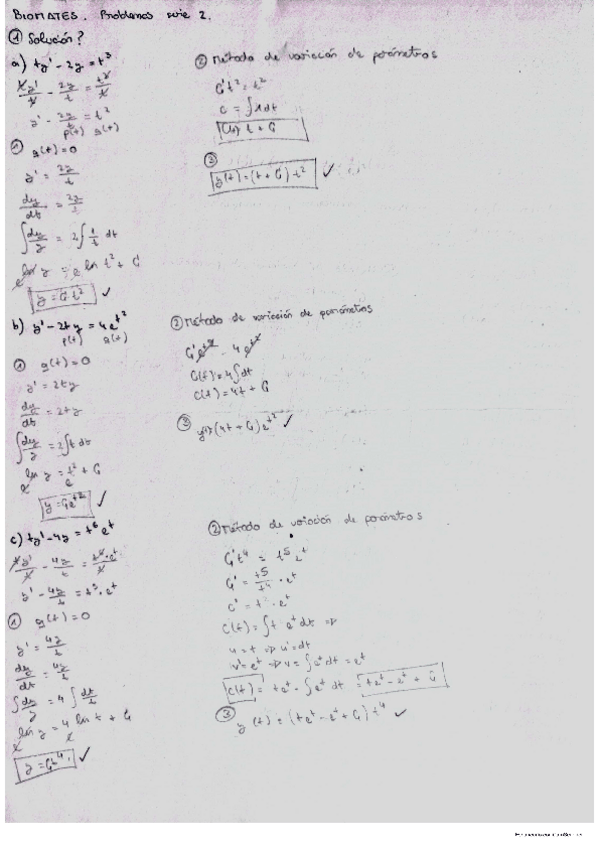 BIOMATES. Problemas serie 2.
① Solución?
a) ty' - 2y = t³
ty'/t - 2y/t = t³/t
y' - 2y/t = t²
p(t) g(t)
① g(t) = 0
y' = 2y/t
dy/dt = 2y/t
∫ dy/y = 2∫ 1/t dt
e ln y = e ln t² + C
y = C t² ✓
② Método de variación de parámetros
C' t² = t²
C = ∫1dt
C(t) = t + C
③
y(t) = (t + C) t² ✓
b) y' - 2ty = 4e^t²
p(t) g(t)
① g(t) = 0
y' = 2ty
dy/dt = 2ty
∫ dy/y = 2∫t dt
e ln y = e t² + C
y = C e^t² ✓
② Método de variación de parámetros
C' e^t² = 4 e^t²
C(t) = 4∫dt
C(t) = 4t + C
③ y(t) = (4t + C) e^t² ✓
c) ty' - 4y = t⁶ e^t
ty'/t - 4y/t = t⁶·e^t/t
y' - 4y/t = t⁵·e^t
① g(t) = 0
y' = 4y/t
dy/dt = 4y/t
∫ dy/y = 4 ∫ dt/t
e ln y = 4 e ln t + C
y = C t⁴ ✓
② Método de variación de parámetros
C' t⁴ = t⁵ e^t
C' = t⁵/t⁴ · e^t
C' = t · e^t
C(t) = ∫ t e^t dt ⇒
u = t ⇒ u' = dt
v' = e^t ⇒ v = ∫e^t dt = e^t
C(t) = t e^t - ∫ e^t dt = t e^t - e^t + C
③ y(t) = (t e^t - e^t + C) t⁴ ✓